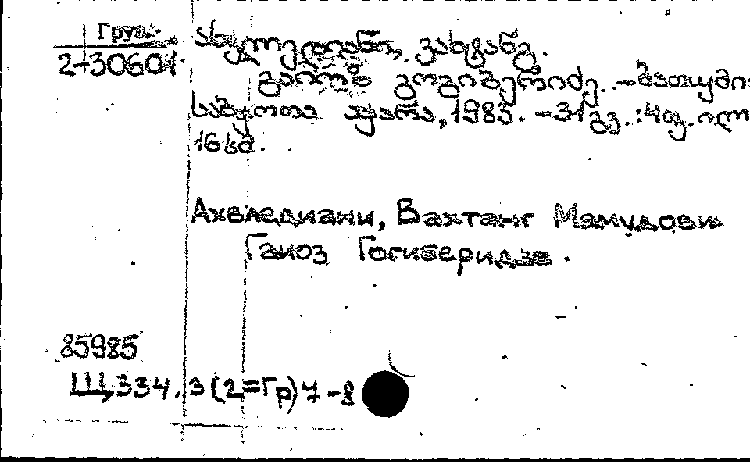 Груз.
2-30601
ახვლედიანი, ვახტანგ.
გაიოზ გოგიბერიძე. – ბათუმი:
საბჭოთა აჭარა, 1985. – 31 გვ. : 4 ფ. ილ
16 სმ.
Ахвледиани, Вахтанг Мамудови
Гаиоз Гогиберидзе.
85985
Щ334.3(2=Гр)7-8